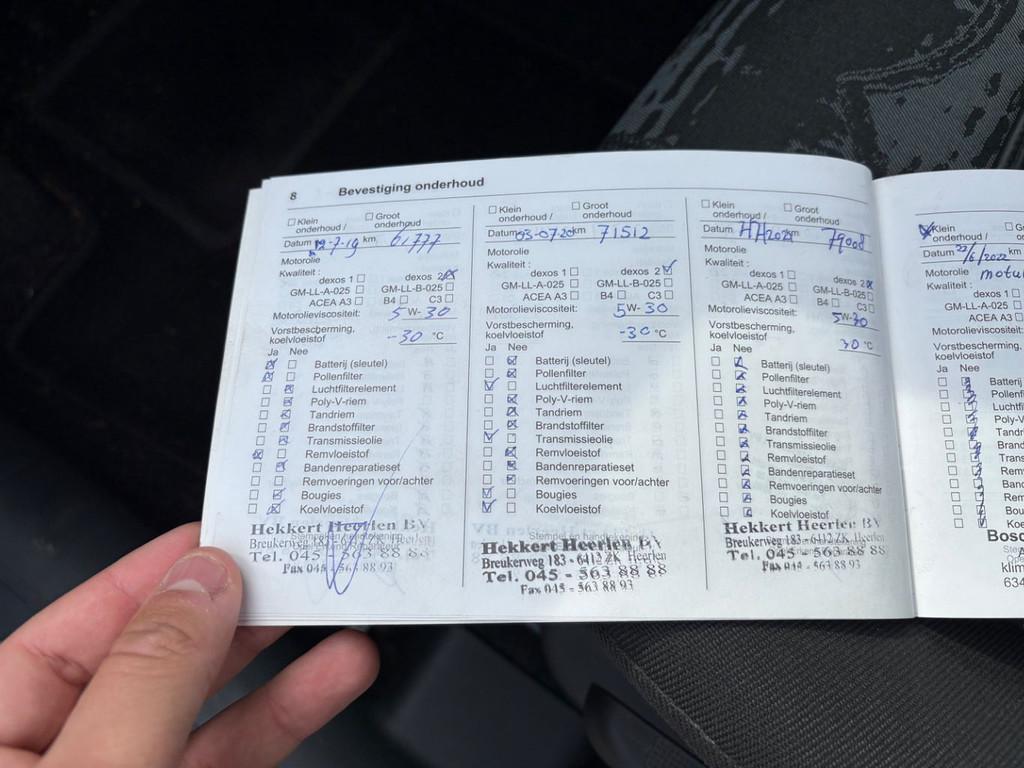 8 Bevestiging onderhoud
☐ Klein onderhoud / ☐ Groot onderhoud
Datum 12-7-19 km 61777
Motorolie
Kwaliteit :
dexos 1 ☐ dexos 2 ☒
GM-LL-A-025 ☐ GM-LL-B-025 ☐
ACEA A3 ☐ B4 ☐ C3 ☐
Motorolieviscositeit: 5 W- 30
Vorstbescherming,
koelvloeistof -30 °C
Ja Nee
☒ ☐ Batterij (sleutel)
☒ ☐ Pollenfilter
☐ ☒ Luchtfilterelement
☐ ☒ Poly-V-riem
☐ ☒ Tandriem
☐ ☒ Brandstoffilter
☐ ☒ Transmissieolie
☒ ☐ Remvloeistof
☐ ☒ Bandenreparatieset
☐ ☐ Remvoeringen voor/achter
☐ ☒ Bougies
☐ ☒ Koelvloeistof
Hekkert Heerlen BV
Breukerweg 183 - 6412 ZK Heerlen
Tel. 045 - 563 88 88
Fax 045 - 563 88 93
☐ Klein onderhoud / ☐ Groot onderhoud
Datum 03-07-20 km 71512
Motorolie
Kwaliteit :
dexos 1 ☐ dexos 2 ☑
GM-LL-A-025 ☐ GM-LL-B-025 ☐
ACEA A3 ☐ B4 ☐ C3 ☐
Motorolieviscositeit: 5 W- 30
Vorstbescherming,
koelvloeistof -30 °C
Ja Nee
☐ ☑ Batterij (sleutel)
☐ ☒ Pollenfilter
☑ ☐ Luchtfilterelement
☐ ☒ Poly-V-riem
☐ ☒ Tandriem
☐ ☒ Brandstoffilter
☑ ☐ Transmissieolie
☐ ☒ Remvloeistof
☐ ☒ Bandenreparatieset
☐ ☒ Remvoeringen voor/achter
☑ ☐ Bougies
☑ ☐ Koelvloeistof
Stempel en handtekening
Hekkert Heerlen BV
Breukerweg 183 - 6412 ZK Heerlen
Tel. 045 - 563 88 88
Fax 045 - 563 88 93
☐ Klein onderhoud / ☐ Groot onderhoud
Datum km 79008
Motorolie
Kwaliteit :
dexos 1 ☐ dexos 2 ☒
GM-LL-A-025 ☐ GM-LL-B-025 ☐
ACEA A3 ☐ B4 ☐ C3 ☐
Motorolieviscositeit: 5 W- 30
Vorstbescherming,
koelvloeistof 30 °C
Ja Nee
☐ ☑ Batterij (sleutel)
☐ ☒ Pollenfilter
☐ ☒ Luchtfilterelement
☐ ☒ Poly-V-riem
☐ ☒ Tandriem
☐ ☒ Brandstoffilter
☐ ☒ Transmissieolie
☐ ☒ Remvloeistof
☐ ☒ Bandenreparatieset
☐ ☒ Remvoeringen voor/achter
☐ ☒ Bougies
☐ ☒ Koelvloeistof
Hekkert Heerlen BV
Breukerweg 183 - 6412 ZK Heerlen
Tel. 045 - 563 88 88
Fax 045 - 563 88 93
☒ Klein onderhoud /
Datum 22/6/2022 km
Motorolie motu
Kwaliteit :
dexos 1 ☐
GM-LL-A-025 ☐
ACEA A3 ☐
Motorolieviscositeit
Vorstbescherming,
koelvloeistof
Ja Nee
Batterij
Pollenf
Luchtfi
Poly-V
Tandr
Brand
Trans
Remv
Band
Rem
Bou
Koe
Bosc
klim
634